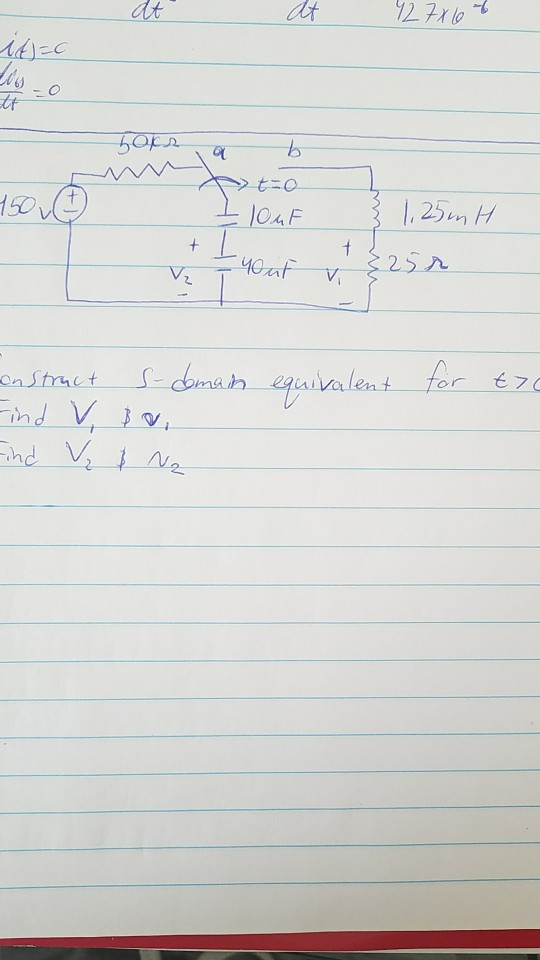 dt dt 427x10⁻⁶
i(t)=c
dt =0
50kΩ a b
t=0
150v + - 10µF 1.25mH
+ 40µF + 25Ω
V₂ V₁
- -
onstruct S-domain equivalent for t>0
Find V₁ & v₁
Find V₂ & v₂